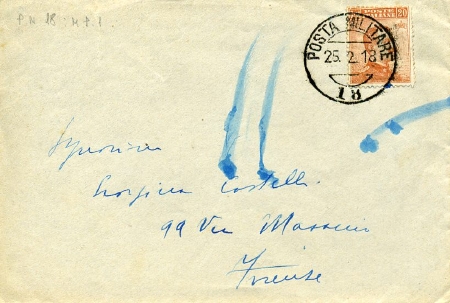 P.M 18:
POSTE ITALIANE 20
POSTA MILITARE
25.2.18
18
Signorina
Giorgina Castelli
99 Via
Firenze